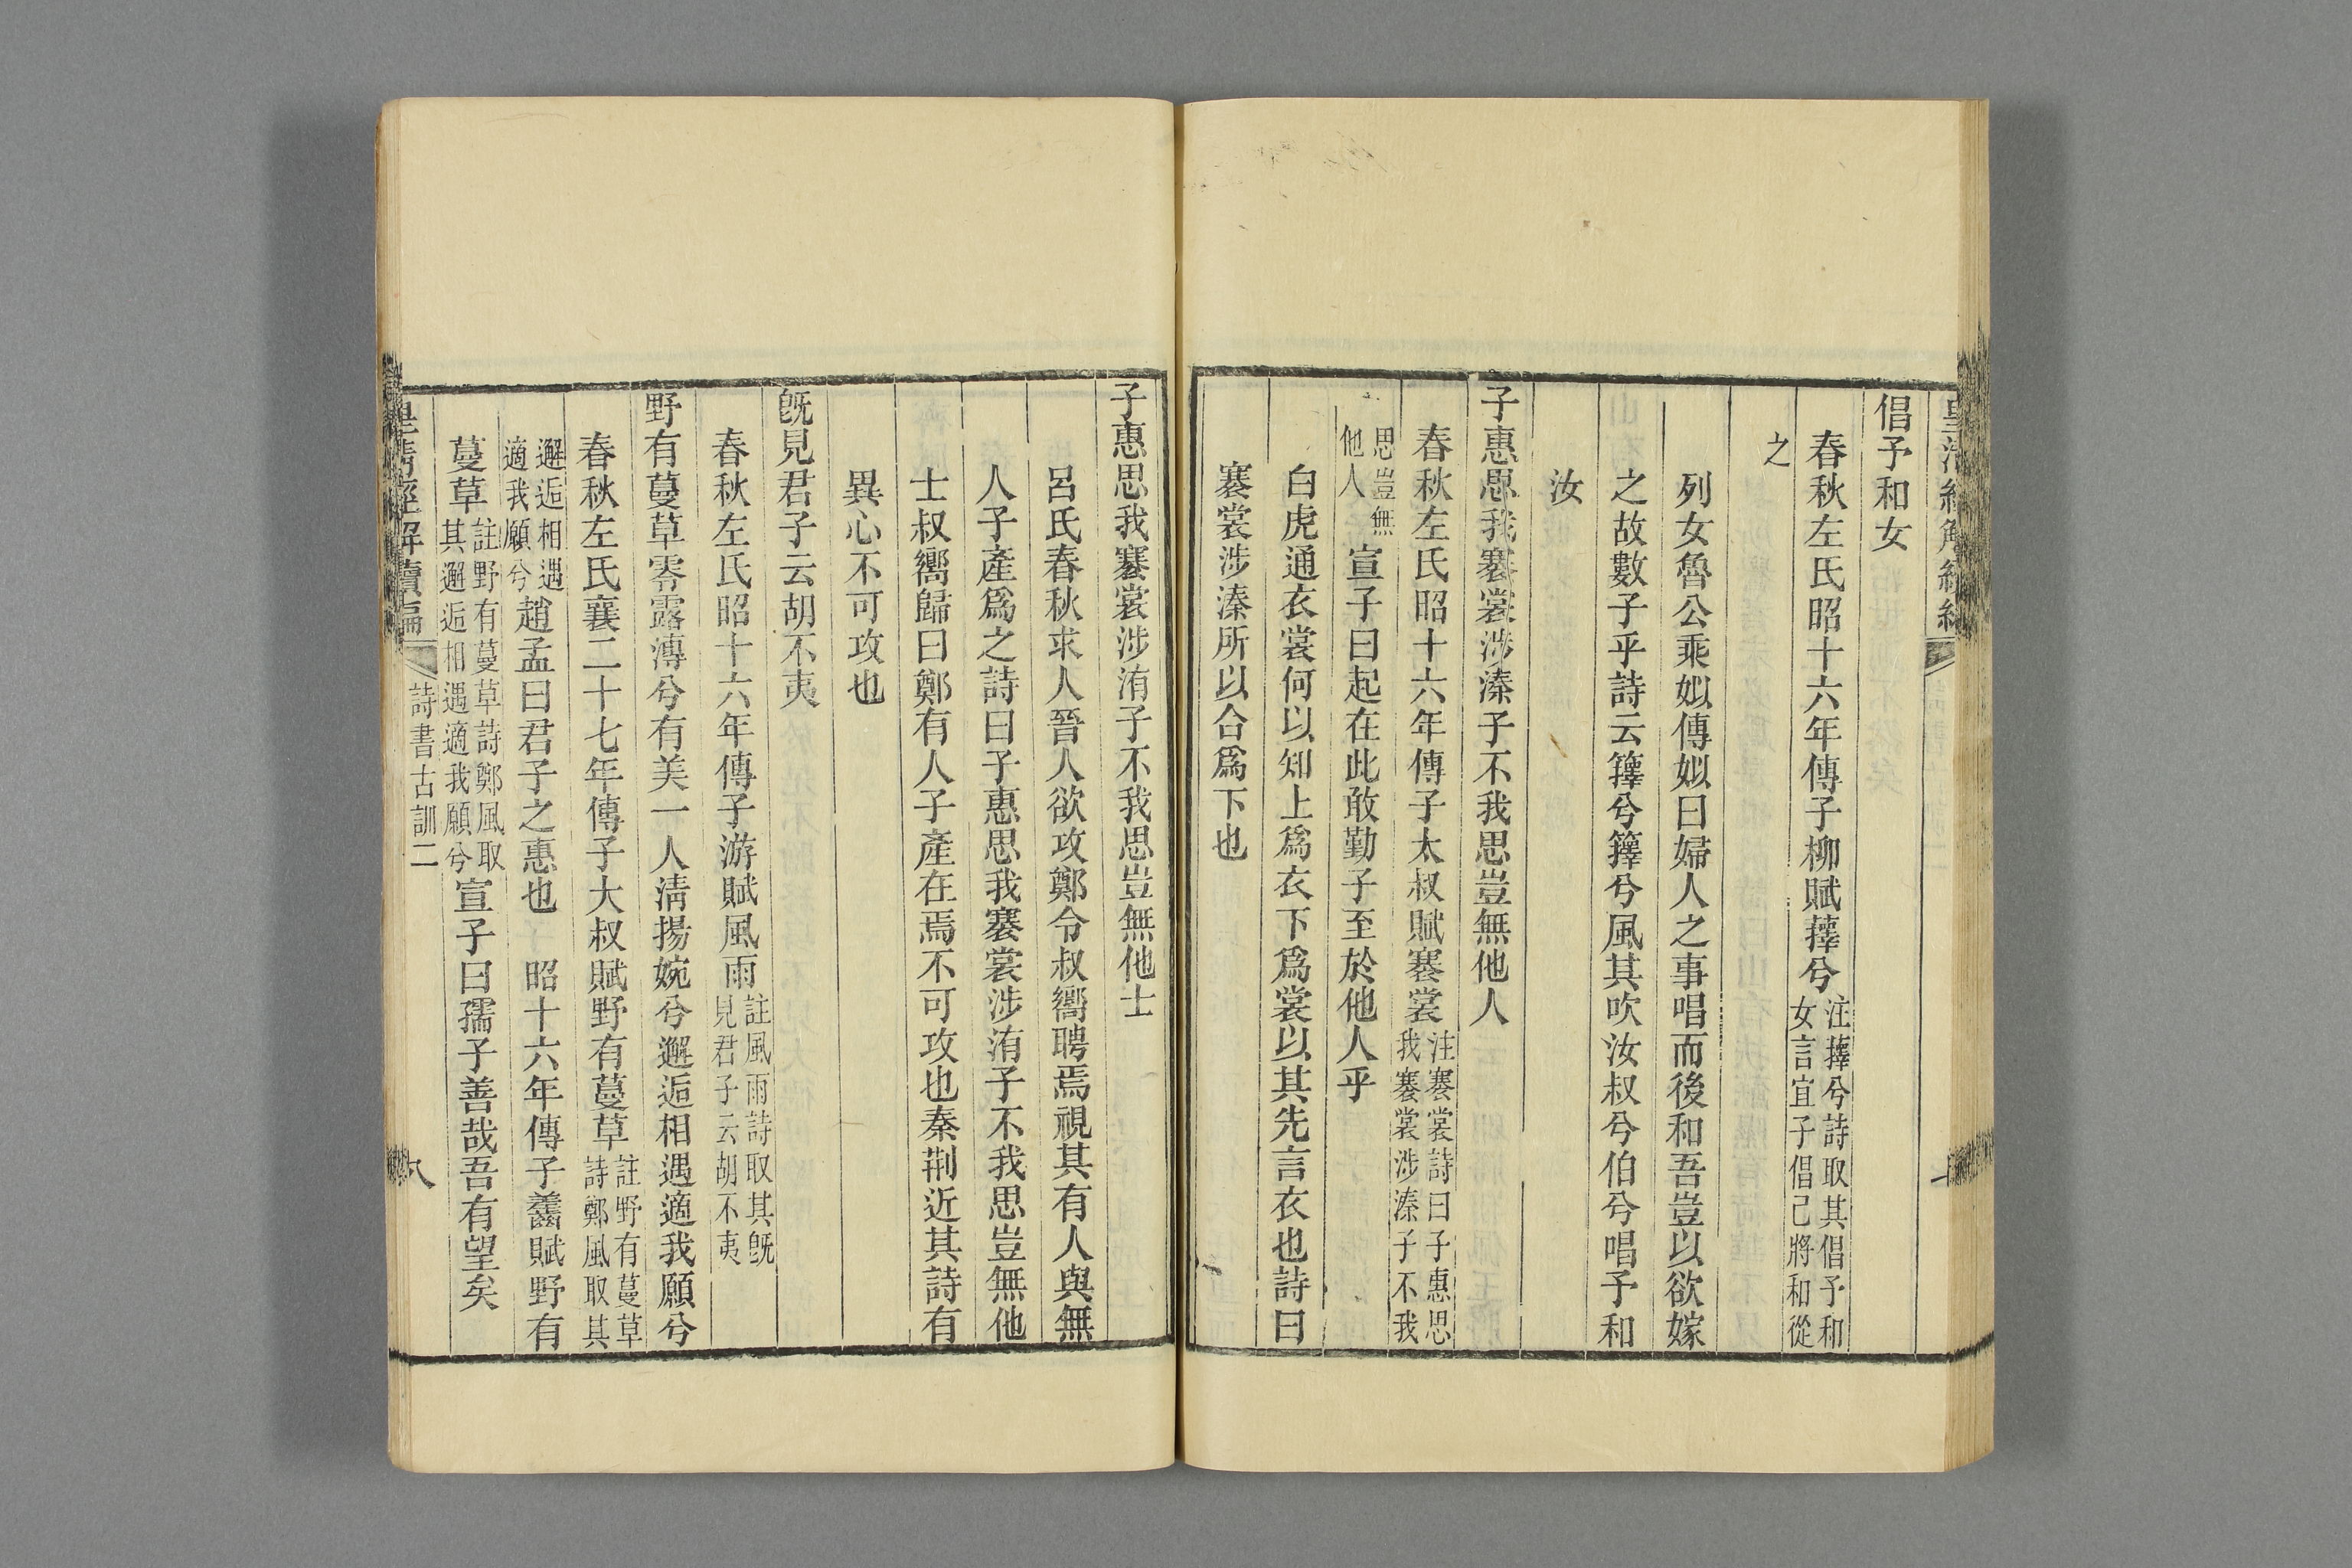 倡予和女
春秋左氏昭十六年傳子柳賦蘀兮注蘀兮詩取其倡予和女言宜子倡己將和從
之
列女魯公乘姒傳姒曰婦人之事唱而後和吾豈以欲嫁
之故數子乎詩云籜兮籜兮風其吹汝叔兮伯兮唱予和
汝
子惠思我褰裳涉溱子不我思豈無他人
春秋左氏昭十六年傳子太叔賦褰裳注褰裳詩曰子惠思我褰裳涉溱子不我
思豈無他人宣子曰起在此敢勤子至於他人乎
白虎通衣裳何以知上爲衣下爲裳以其先言衣也詩曰
褰裳涉溱所以合爲下也
子惠思我褰裳涉洧子不我思豈無他士
呂氏春秋求人晉人欲攻鄭令叔嚮聘焉視其有人與無
人子產爲之詩曰子惠思我褰裳涉洧子不我思豈無他
士叔嚮歸曰鄭有人子產在焉不可攻也秦荆近其詩有
異心不可攻也
旣見君子云胡不夷
春秋左氏昭十六年傳子游賦風雨註風雨詩取其旣見君子云胡不夷
野有蔓草零露漙兮有美一人淸揚婉兮邂逅相遇適我願兮
春秋左氏襄二十七年傳子大叔賦野有蔓草註野有蔓草詩鄭風取其
邂逅相遇適我願兮趙孟曰君子之惠也 昭十六年傳子齹賦野有
蔓草註野有蔓草詩鄭風取其邂逅相遇適我願兮宣子曰孺子善哉吾有望矣
皇淸經解續編 詩書古訓二 八